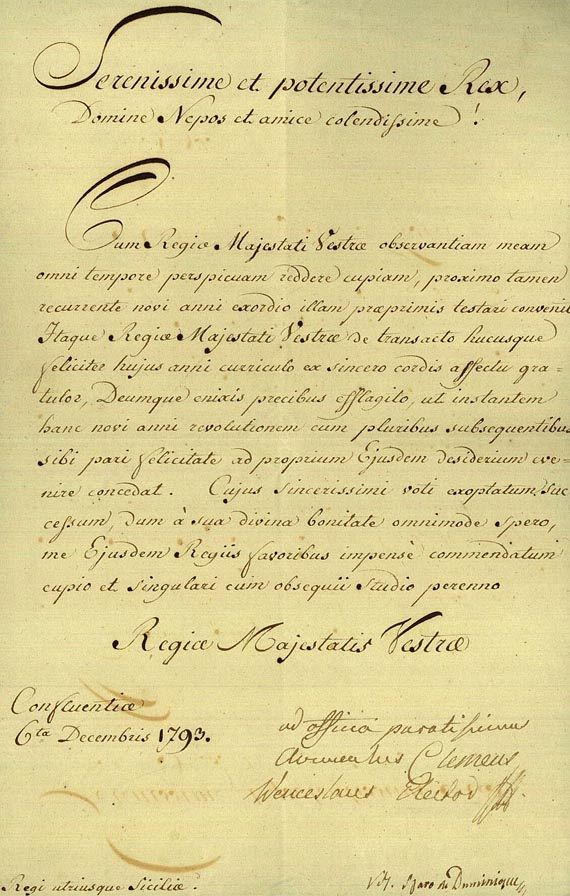 Serenissime et potentissime Rex,
Domine Nepos et amice colendissime !
Cum Regiæ Majestati Vestræ observantiam meam
omni tempore perspicuam reddere cupiam, proximo tamen
recurrente novi anni exordio illam præprimis testari convenit
Itaque Regiæ Majestati Vestræ de transacto hucusque
feliciter hujus anni curriculo ex sincero cordis affectu gra=
tulor, Deumque enixis precibus efflagito, ut instantem
hanc novi anni revolutionem cum pluribus subsequentibus
sibi pari felicitate ad proprium Ejusdem desiderium eve=
nire concedat. Cujus sincerissimi voti exoptatum suc
cessum, dum à sua divina bonitate omnimode spero,
me Ejusdem Regiis favoribus impensè commendatum
cupio et singulari cum obsequii studio perenno
Regiæ Majestatis Vestræ
Confluentiæ
6ta Decembris 1793.
ad officia paratissimus
Avunculus Clemens
Wenceslaus Elector
Regi utriusque Siciliæ.
Vdt.